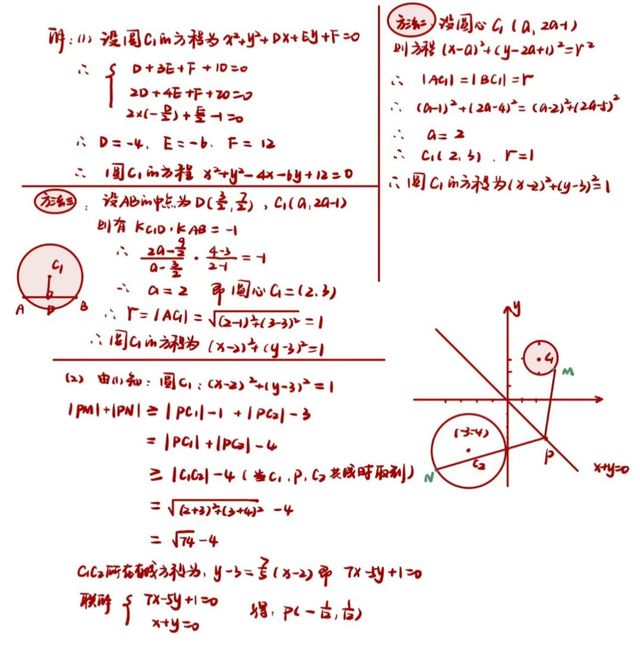 解：(1) 设圆C₁的方程为x²+y²+Dx+Ey+F=0
∴ { D+3E+F+10=0
2D+4E+F+20=0
2×(-D/2)+E/2-1=0
∴ D=-4, E=-6, F=12
∴ 圆C₁的方程 x²+y²-4x-6y+12=0
方法二 设圆心C₁(a, 2a-1)
则方程 (x-a)²+(y-2a+1)²=r²
∴ |AC₁|=|BC₁|=r
∴ (a-1)²+(2a-4)²=(a-2)²+(2a-5)²
∴ a=2
∴ C₁(2,3), r=1
∴ 圆C₁的方程为(x-2)²+(y-3)²=1
方法三：设AB的中点为D(3/2, 7/2), C₁(a, 2a-1)
则有 KC₁D·KAB=-1
∴ (2a-9/2)/(a-3/2)·(4-3)/(2-1)=-1
∴ a=2 即圆心C₁=(2,3)
∴ r=|AC₁|=√((2-1)²+(3-3)²)=1
∴ 圆C₁的方程为 (x-2)²+(y-3)²=1
C₁
A D B
(2) 由(1)知：圆C₁：(x-2)²+(y-3)²=1
|PM|+|PN| ≥ |PC₁|-1+|PC₂|-3
=|PC₁|+|PC₂|-4
≥|C₁C₂|-4 (当C₁, P, C₂共线时取到)
=√((2+3)²+(3+4)²) -4
=√74-4
C₁C₂所在直线方程为, y-3=7/5(x-2) 即 7x-5y+1=0
联解 { 7x-5y+1=0
x+y=0
得：P(-1/12, 1/12)
y
C₁
M
(-3,-4)
C₂
P
N
x+y=0